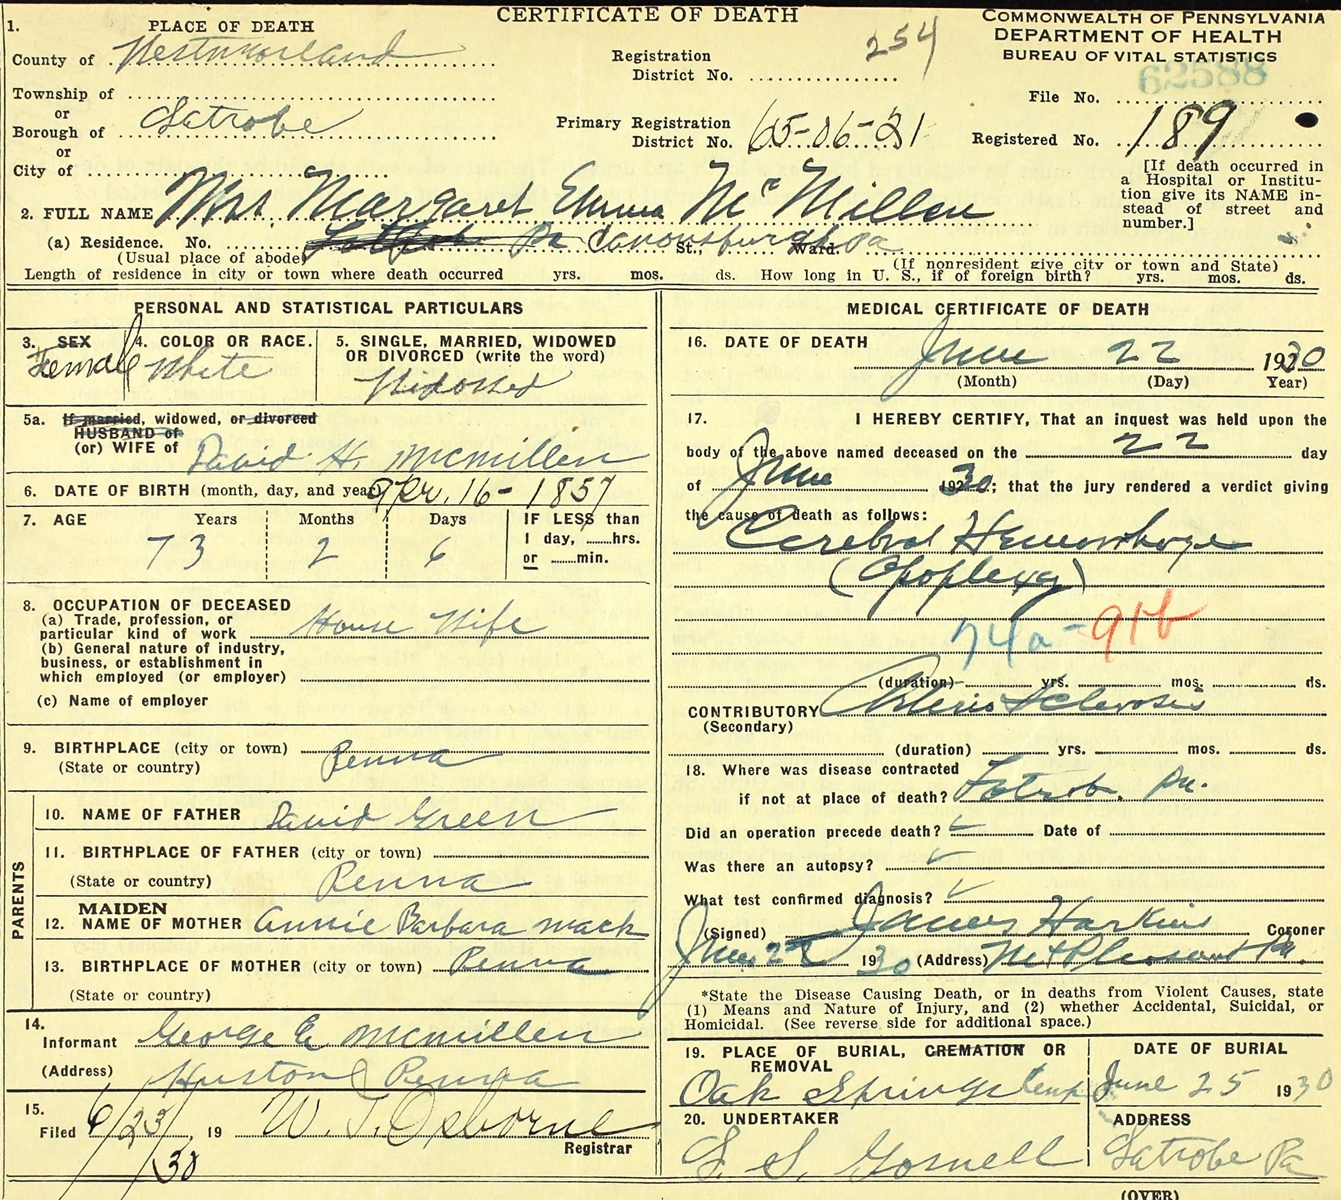 CERTIFICATE OF DEATH
COMMONWEALTH OF PENNSYLVANIA
DEPARTMENT OF HEALTH
BUREAU OF VITAL STATISTICS
1. PLACE OF DEATH
County of Westmorland
Registration
District No. 254
62588
File No.
Township of
or
Borough of Latrobe
Primary Registration
District No. 65-06-21
Registered No. 189
or
City of
[If death occurred in
a Hospital or Institu-
tion give its NAME in-
stead of street and
number.]
2. FULL NAME Mrs Margaret Emma McMillen
(a) Residence. No. Latrobe Pa Canonsburgh Pa St., Ward.
(Usual place of abode)
(If nonresident give city or town and State)
Length of residence in city or town where death occurred yrs. mos. ds. How long in U. S., if of foreign birth? yrs. mos. ds.
PERSONAL AND STATISTICAL PARTICULARS
3. SEX
Female
4. COLOR OR RACE.
White
5. SINGLE, MARRIED, WIDOWED
OR DIVORCED (write the word)
Widowed
5a. If married, widowed, or divorced
HUSBAND of
(or) WIFE of David H. McMillen
6. DATE OF BIRTH (month, day, and year) Apr. 16 - 1857
7. AGE Years Months Days
73 2 6
IF LESS than
1 day, ......hrs.
or ......min.
8. OCCUPATION OF DECEASED
(a) Trade, profession, or
particular kind of work House Wife
(b) General nature of industry,
business, or establishment in
which employed (or employer)
(c) Name of employer
9. BIRTHPLACE (city or town)
(State or country) Penna
PARENTS
10. NAME OF FATHER David Green
11. BIRTHPLACE OF FATHER (city or town)
(State or country) Penna
MAIDEN
12. NAME OF MOTHER Annie Barbara Mack
13. BIRTHPLACE OF MOTHER (city or town) Penna
(State or country)
14.
Informant George E McMillen
(Address) Huston Penna
15.
Filed 6/23/30, 19 W. T. Osborne
Registrar
MEDICAL CERTIFICATE OF DEATH
16. DATE OF DEATH June 22 1930
(Month) (Day) Year)
17. I HEREBY CERTIFY, That an inquest was held upon the
body of the above named deceased on the 22 day
of June 1930; that the jury rendered a verdict giving
the cause of death as follows:
Cerebral Hemorrhage
(Apoplexy)
74a - 91b
(duration) yrs. mos. ds.
CONTRIBUTORY Arterio Sclerosis
(Secondary)
(duration) yrs. mos. ds.
18. Where was disease contracted
if not at place of death? Latrobe, Pa.
Did an operation precede death? ✓ Date of
Was there an autopsy? ✓
What test confirmed diagnosis? ✓
(Signed) James Harkins Coroner
June 1930 (Address) Mt Pleasant Pa.
*State the Disease Causing Death, or in deaths from Violent Causes, state
(1) Means and Nature of Injury, and (2) whether Accidental, Suicidal, or
Homicidal. (See reverse side for additional space.)
19. PLACE OF BURIAL, CREMATION OR
REMOVAL
Oak Springs Cem
DATE OF BURIAL
June 25 1930
20. UNDERTAKER
ADDRESS
Latrobe Pa
(OVER)